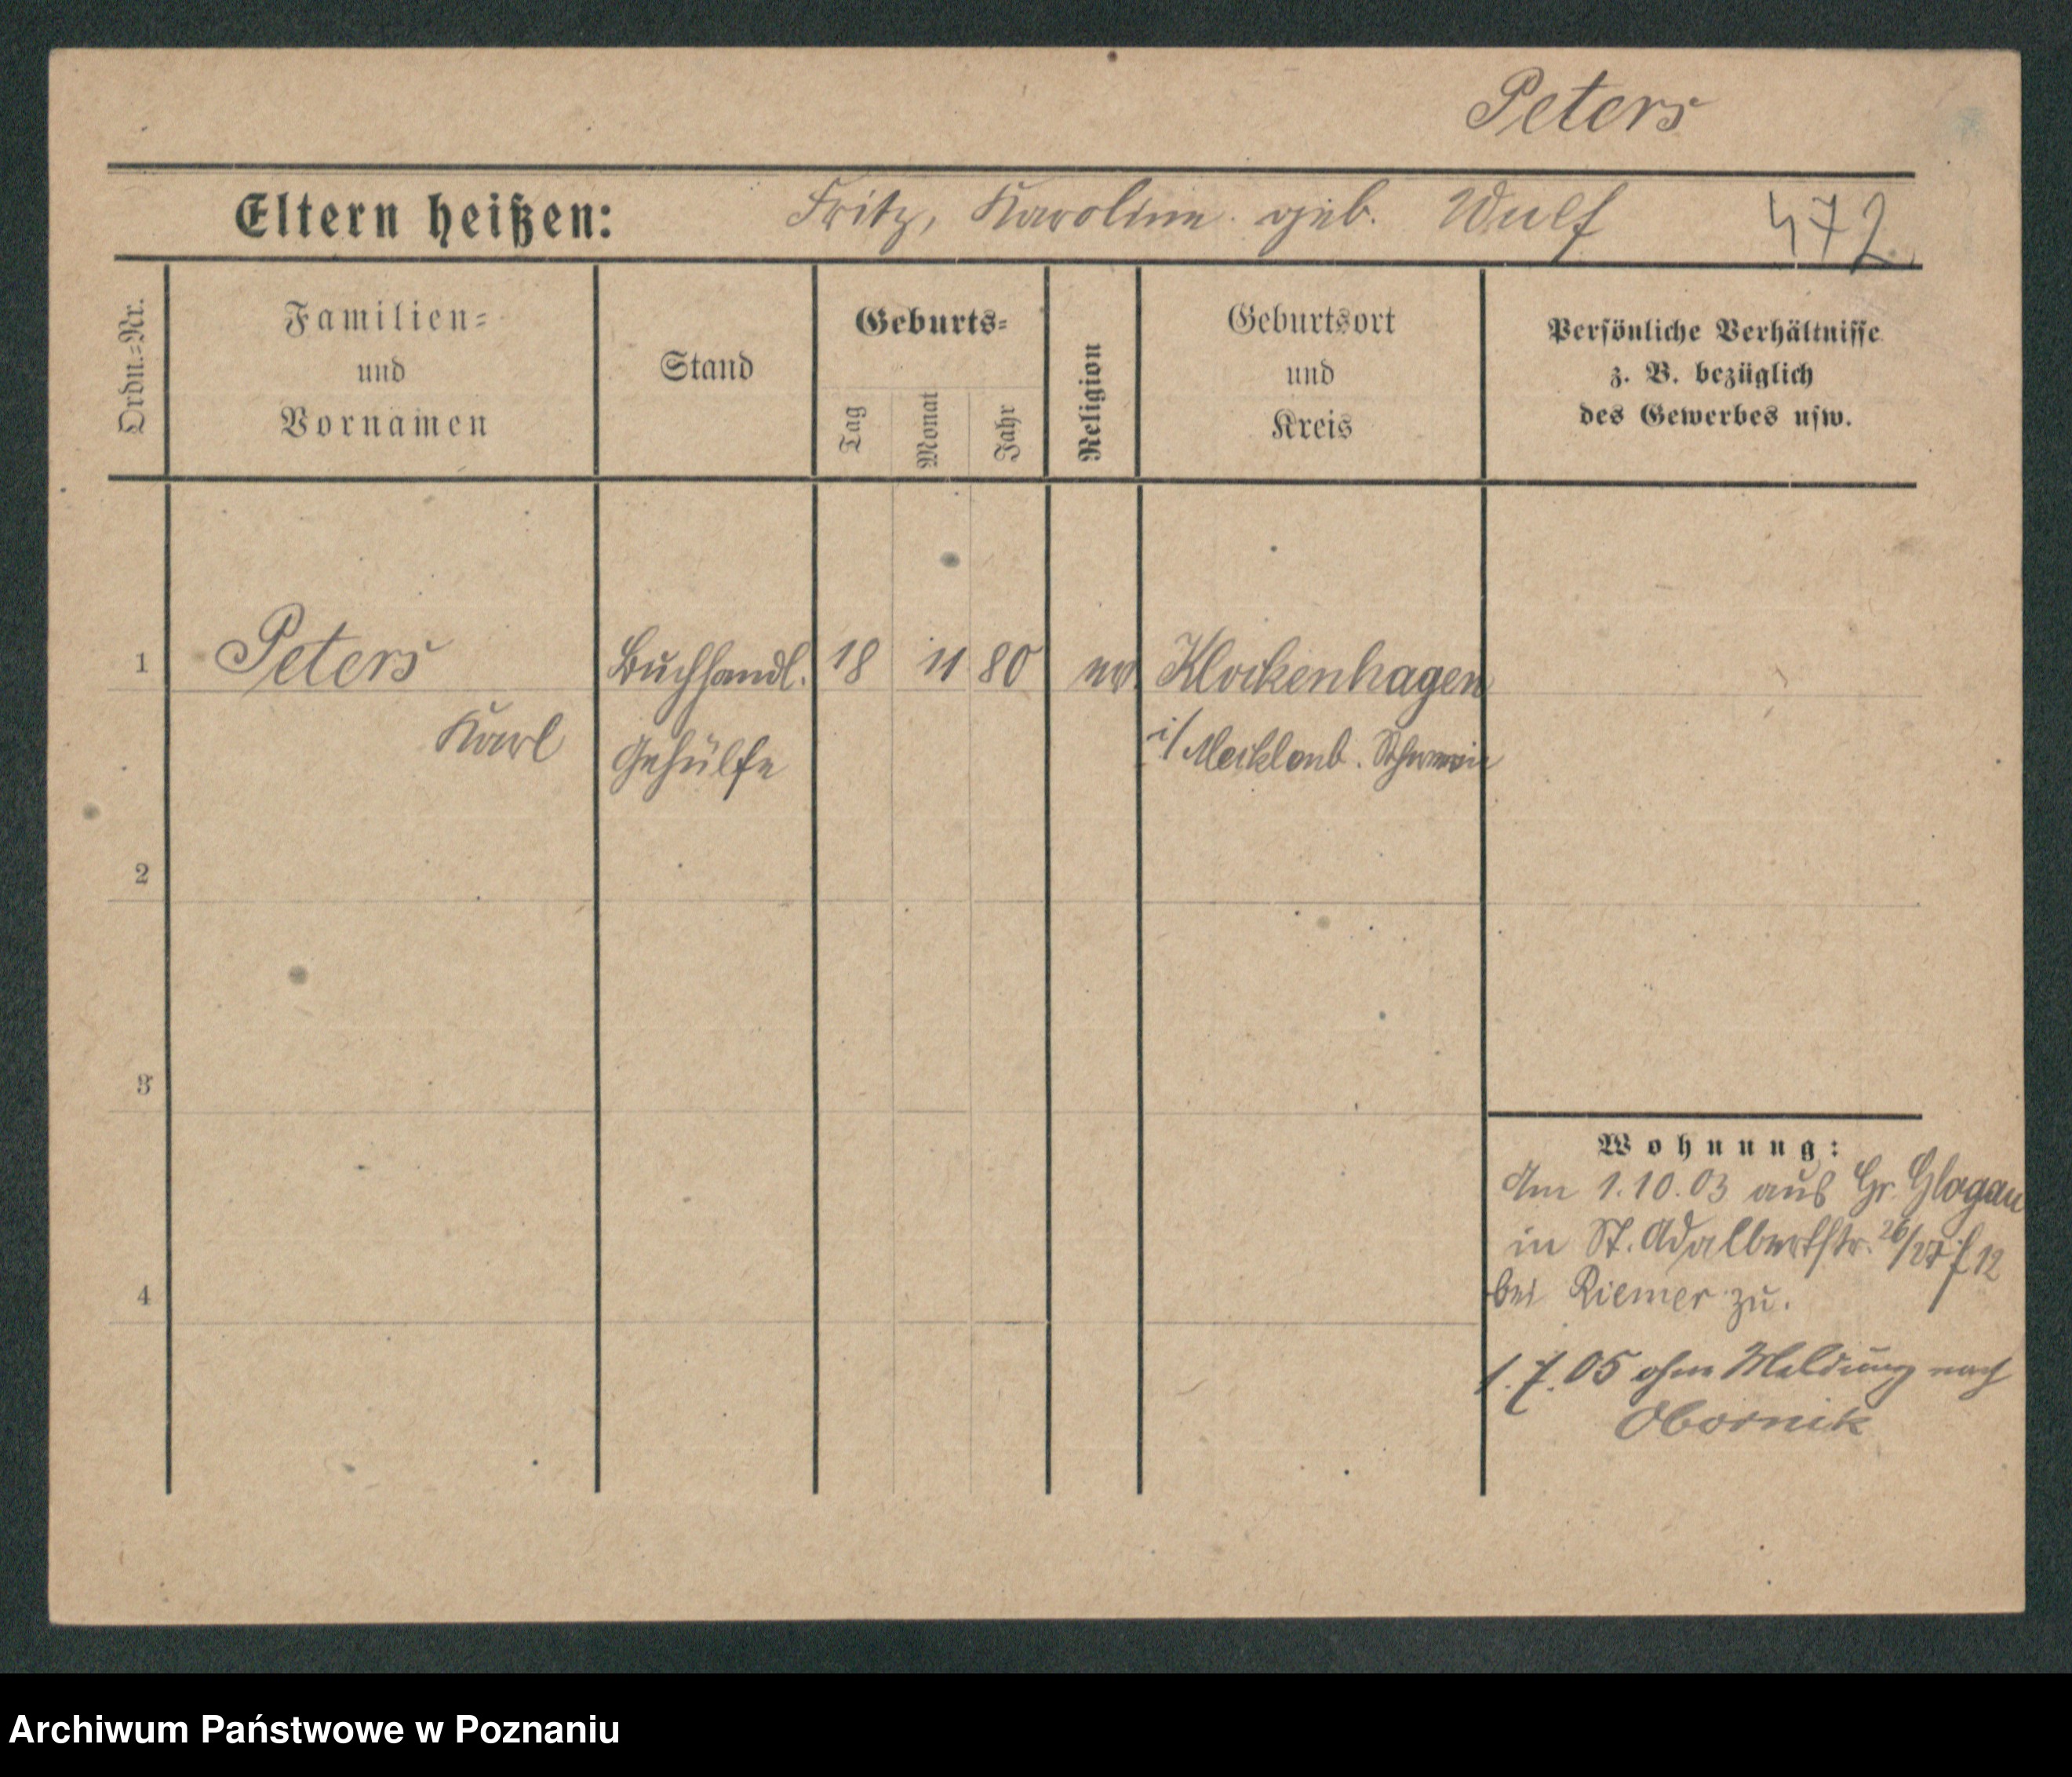 Peters
Eltern heißen: Fritz, Karoline geb. Wulf 472
Ordn.=Nr.
Familien=
und
Vornamen
Stand
Geburts=
Tag
Monat
Jahr
Religion
Geburtsort
und
Kreis
Persönliche Verhältnisse
z. B. bezüglich
des Gewerbes usw.
1 Peters Buchhandl. 18 11 80 ev. Klockenhagen
Karl Gehülfe i/ Mecklenb. Schwerin
2
3
4
Wohnung:
Am 1.10.03 aus Gr. Glogau
in St. Adalbertstr. 26/27 12
bei Riemer zu.
1.7.05 ohne Meldung nach
Obornik
Archiwum Państwowe w Poznaniu